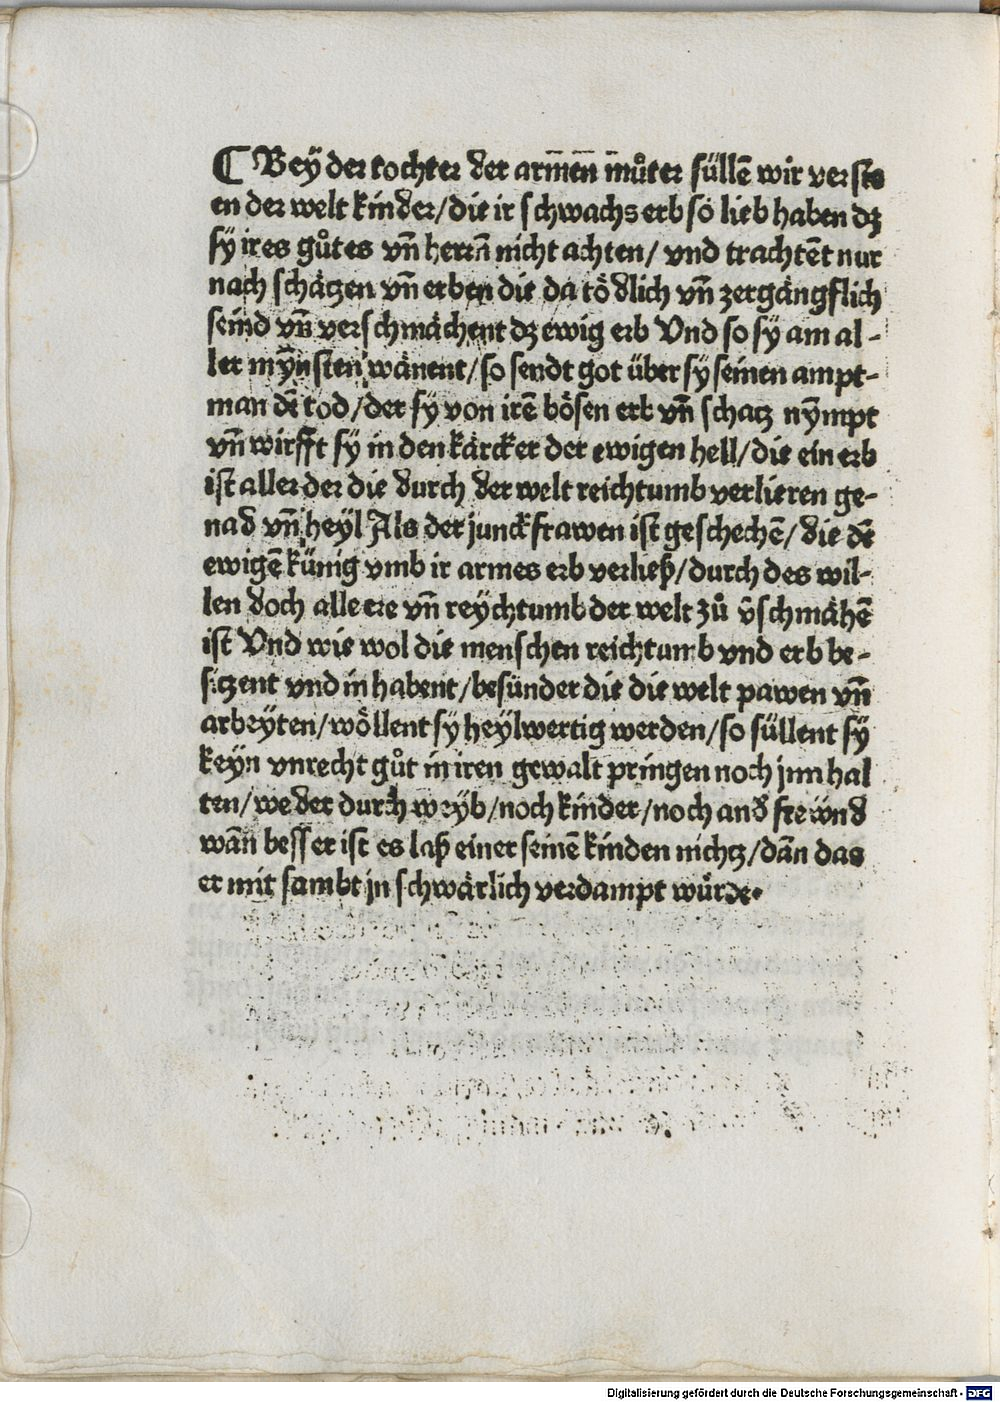 ¶ Beÿ der tochter der armen můter süllē wir verste
en der welt kinder/die ir schwachs erb so lieb haben dz
sÿ ires gůtes vn̄ herrn̄ nicht achten/ vnd trachtēt nur
nach schätzen vn̄ erben die da tödlich vn̄ zergängflich
seind vn̄ verschmächent dz ewig erb Vnd so sÿ am al-
ler mÿnsten wänent/so sendt got über sÿ seinen ampt-
man dē tod/der sÿ von irē bösen erb vn̄ schatz nÿmpt
vn̄ wirfft sÿ in den kärcker der ewigen hell/die ein erb
ist aller der die durch der welt reichtumb verlieren ge-
nad vn̄ heÿl Als der junckfrawen ist geschechē/die dē
ewigē künig vmb ir armes erb verließ/durch des wil-
len doch alle ere vn̄ reÿchtumb der welt zů v̄schmähē
ist Vnd wie wol die menschen reichtumb vnd erb be-
sitzent vnd inhabent/besünder die die welt pawen vn̄
arbeÿten/wöllent sÿ heÿlwertig werden/so süllent sÿ
keÿn vnrecht gůt in iren gewalt pringen noch jnn hal
ten/weder durch weÿb/noch kinder/noch and freünd
wān besser ist es laß einer seinē kinden nichtz/dān das
er mit sambt jn schwärlich verdampt wůrde.
Digitalisierung gefördert durch die Deutsche Forschungsgemeinschaft - DFG